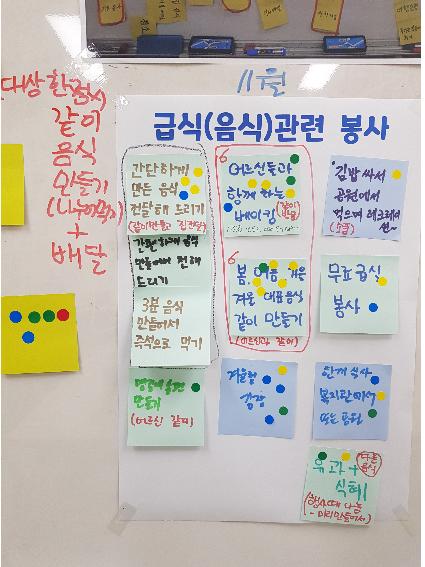 11월
급식(음식)관련 봉사
대상한정X
같이
음식
만들기
(나누어먹기)
+
배달
간단하게
만든 음식
전달해 드리기
간편하게 음식
만들어서 전해
드리기
3분 음식
만들어서
즉석으로 먹기
만들기
(어르신 같이)
6
어르신들과
함께 하는
베이킹
6
봄, 여름, 가을
겨울 대표음식
같이 만들기
(어르신과 같이)
겨울철
김장
김밥 싸서
공원에서
먹으며 레크레이
션~
(소풍)
무료급식
봉사
단체 식사
복지관에서
또는 공원
유과+
식혜
다른
음식
(행사때 나눔
-미리만들어서)